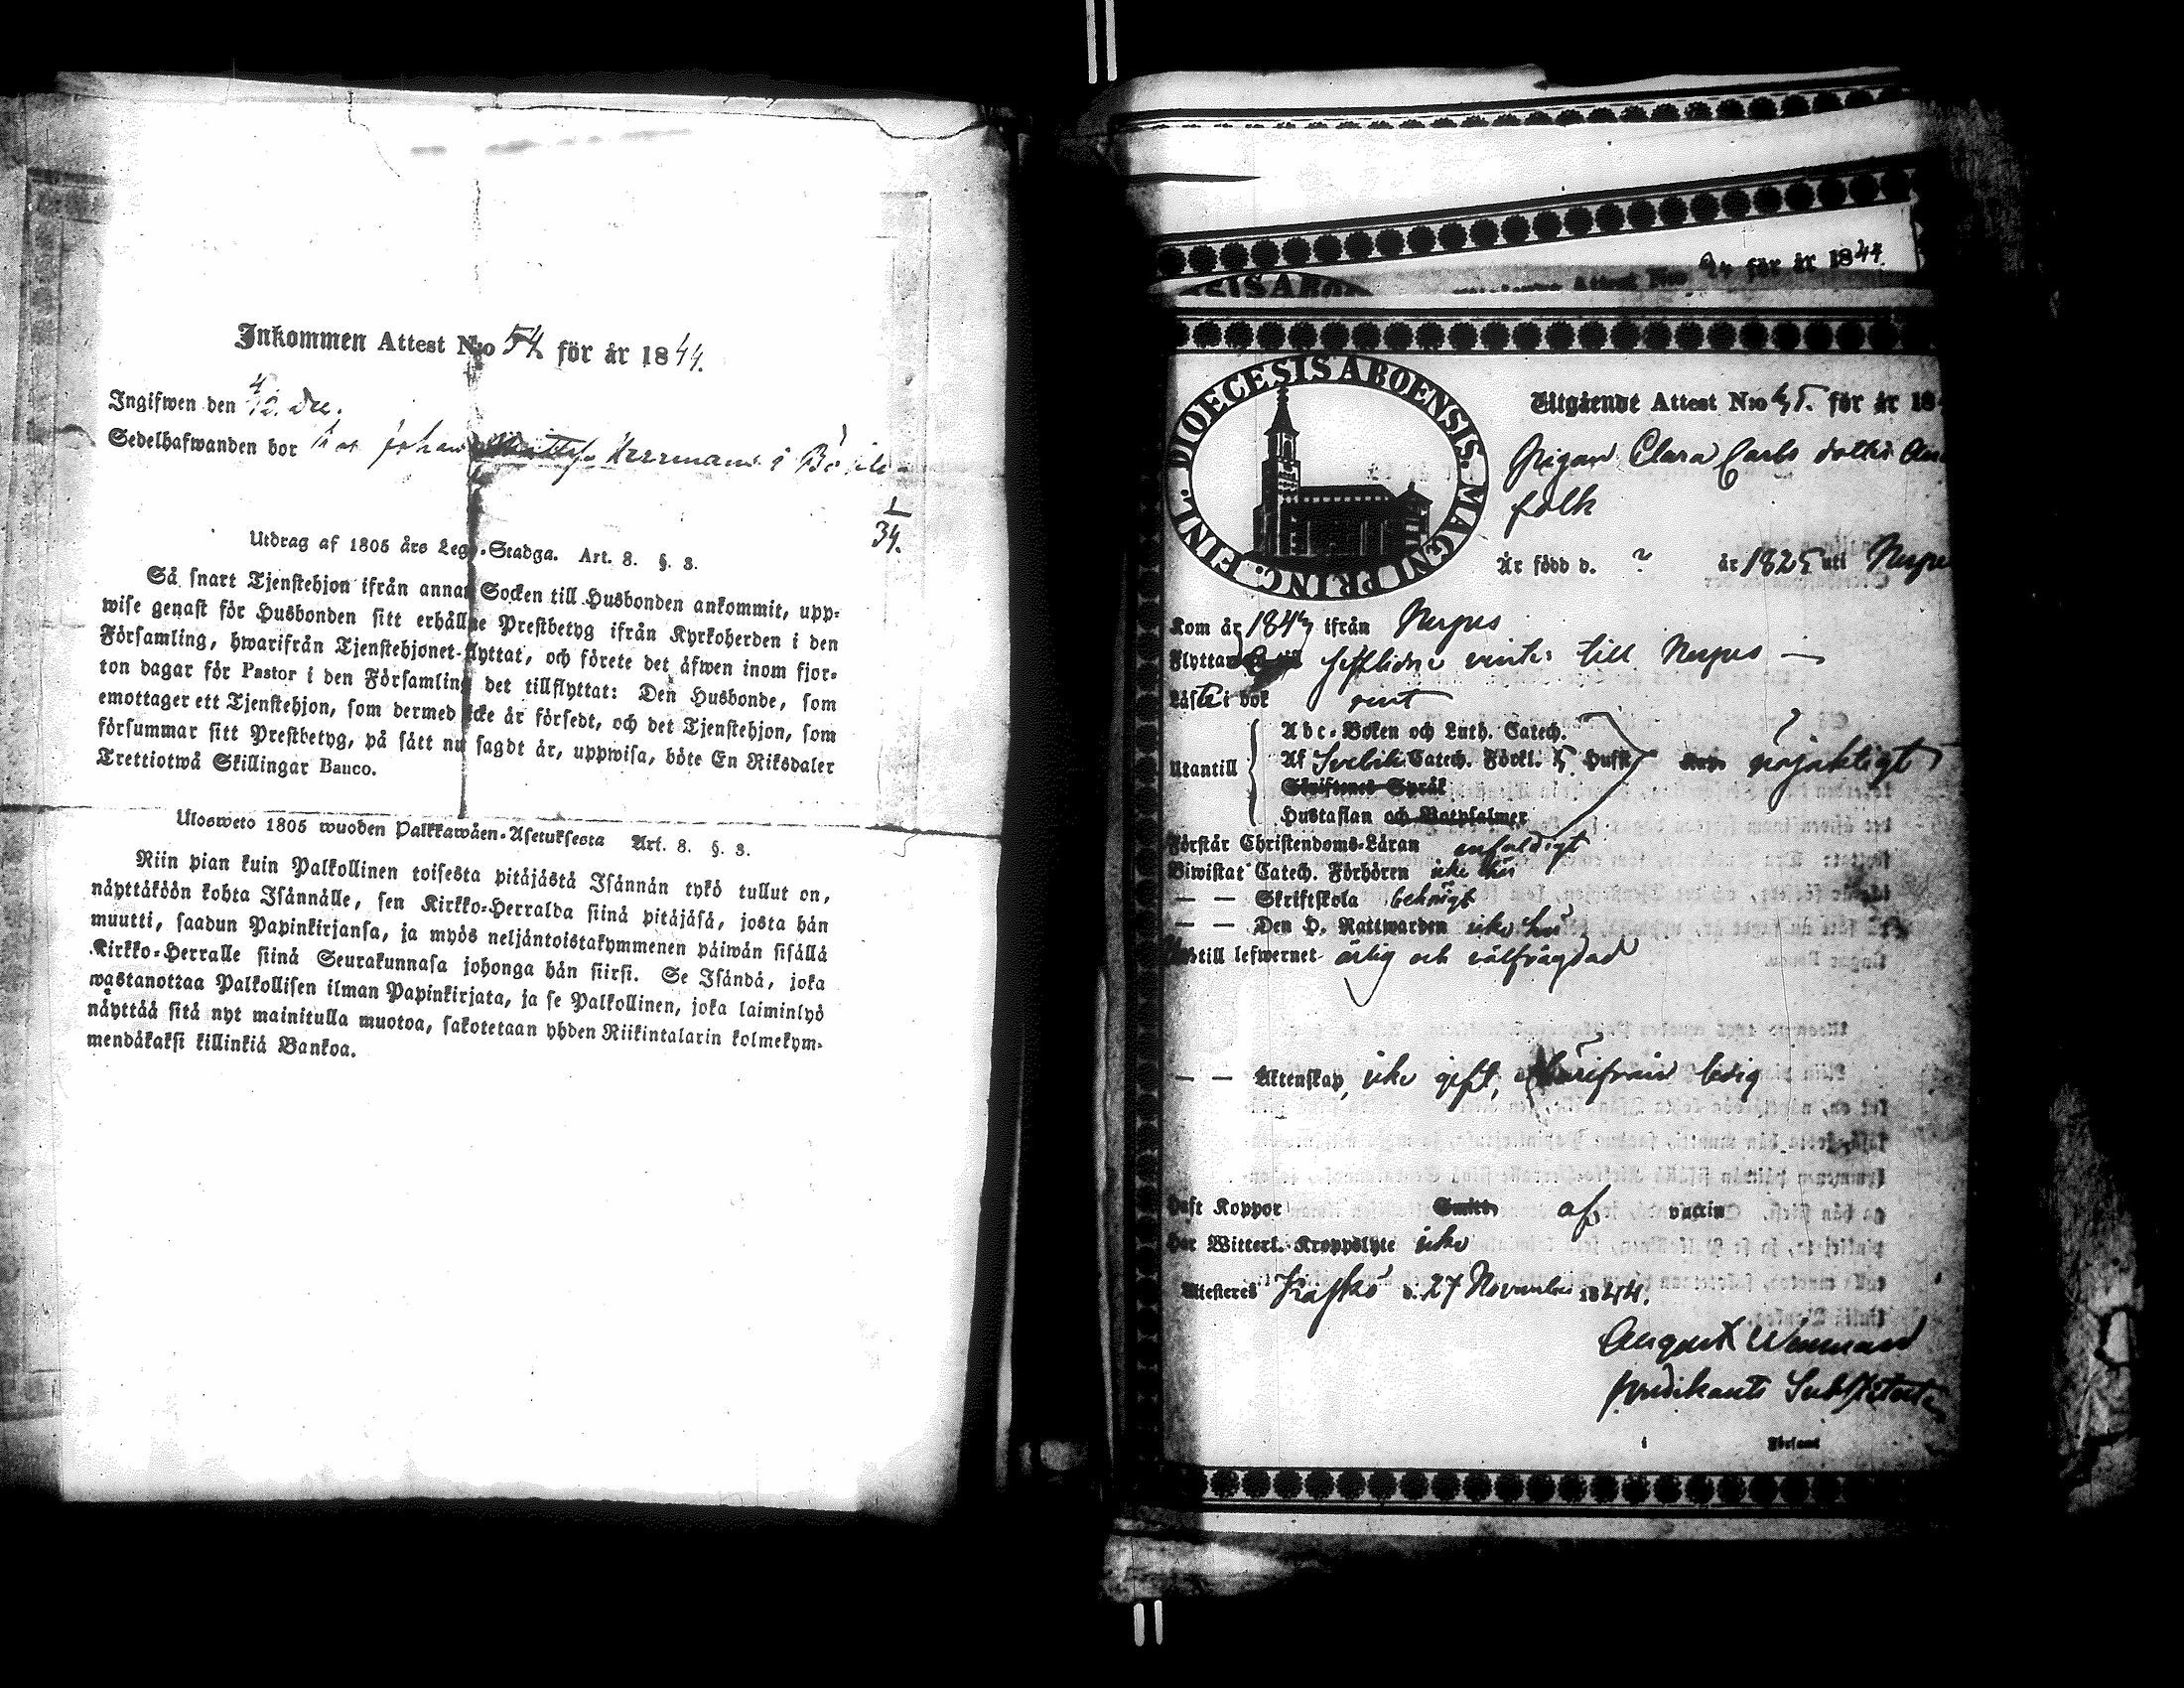 Inkommen Attest N:o 54 för år 1844.
Ingifwen den
Sedelhafwanden bor hos Johan Herrmans i
1
34.
Utdrag af 1805 års Lego-Stadga. Art. 8. §. 3.
Så snart Tjenstehjon ifrån annan Socken till Husbonden ankommit, upp-
wise genast för Husbonden sitt erhållne Prestbetyg ifrån Kyrkoherden i den
Församling, hwarifrån Tjenstehjonet flyttat, och förete det åfwen inom fjor-
ton dagar för Pastor i den Församling det tillflyttat: Den Husbonde, som
emottager ett Tjenstehjon, som dermed icke är försedt, och det Tjenstehjon, som
försummar sitt Prestbetyg, på sått nu sagdt år, uppwisa, böte En Riksdaler
Trettiotwå Skillingar Banco.
Ulosweto 1805 wuoden Palkkawäen-Asetuksesta Art. 8. §. 3.
Niin pian kuin Palkollinen toisesta pitäjästä Isännän tykö tullut on,
näyttäköön kohta Isännälle, sen Kirkko-Herralda siinä pitäjäsä, josta hän
muutti, saadun Papinkirjansa, ja myös neljäntoistakymmenen päiwän sisällä
Kirkko-Herralle siinä Seurakunnasa johonga hän siirsi. Se Isändä, joka
wastanottaa Palkollisen ilman Papinkirjata, ja se Palkollinen, joka laiminlyö
näyttää sitä nyt mainitulla muotoa, sakotetaan yhden Riikintalarin kolmekym-
mendäkaksi killinkiä Bankoa.
för år 1844
DIOECESIS ABOENSIS. MAGNI PRINC. FINL.
Utgående Attest N:o 45. för år 18
Pigan Clara Carls dotter
folk
Är född d. ? år 1825 uti Nerpes
Kom år 1843 ifrån Nerpes
Flyttar sistlidne vinter till Nerpes
Läste i bok rent
Utantill
Abc-Boken och Luth. Catech.
Af Svebilii Catech. Förkl. 5 Hufst nöjaktigt
Skriftenes Språk
Hustaflan och Botpsalmer
Förstår Christendoms-Läran enfaldigt
Biwistat Catech. Förhören icke här
— — Skriftskola behörigt
— — Den H. Nattwarden icke här
till lefwernet ärlig och välfrägdad
— — Äktenskap, icke gift, härifrån ledig
Haft Koppor af vaccin
Har Witterl. Kroppslyte icke
Attesteres Kaskö d. 27 November 1844.
August Wennard
predikants Substitut
i Församl